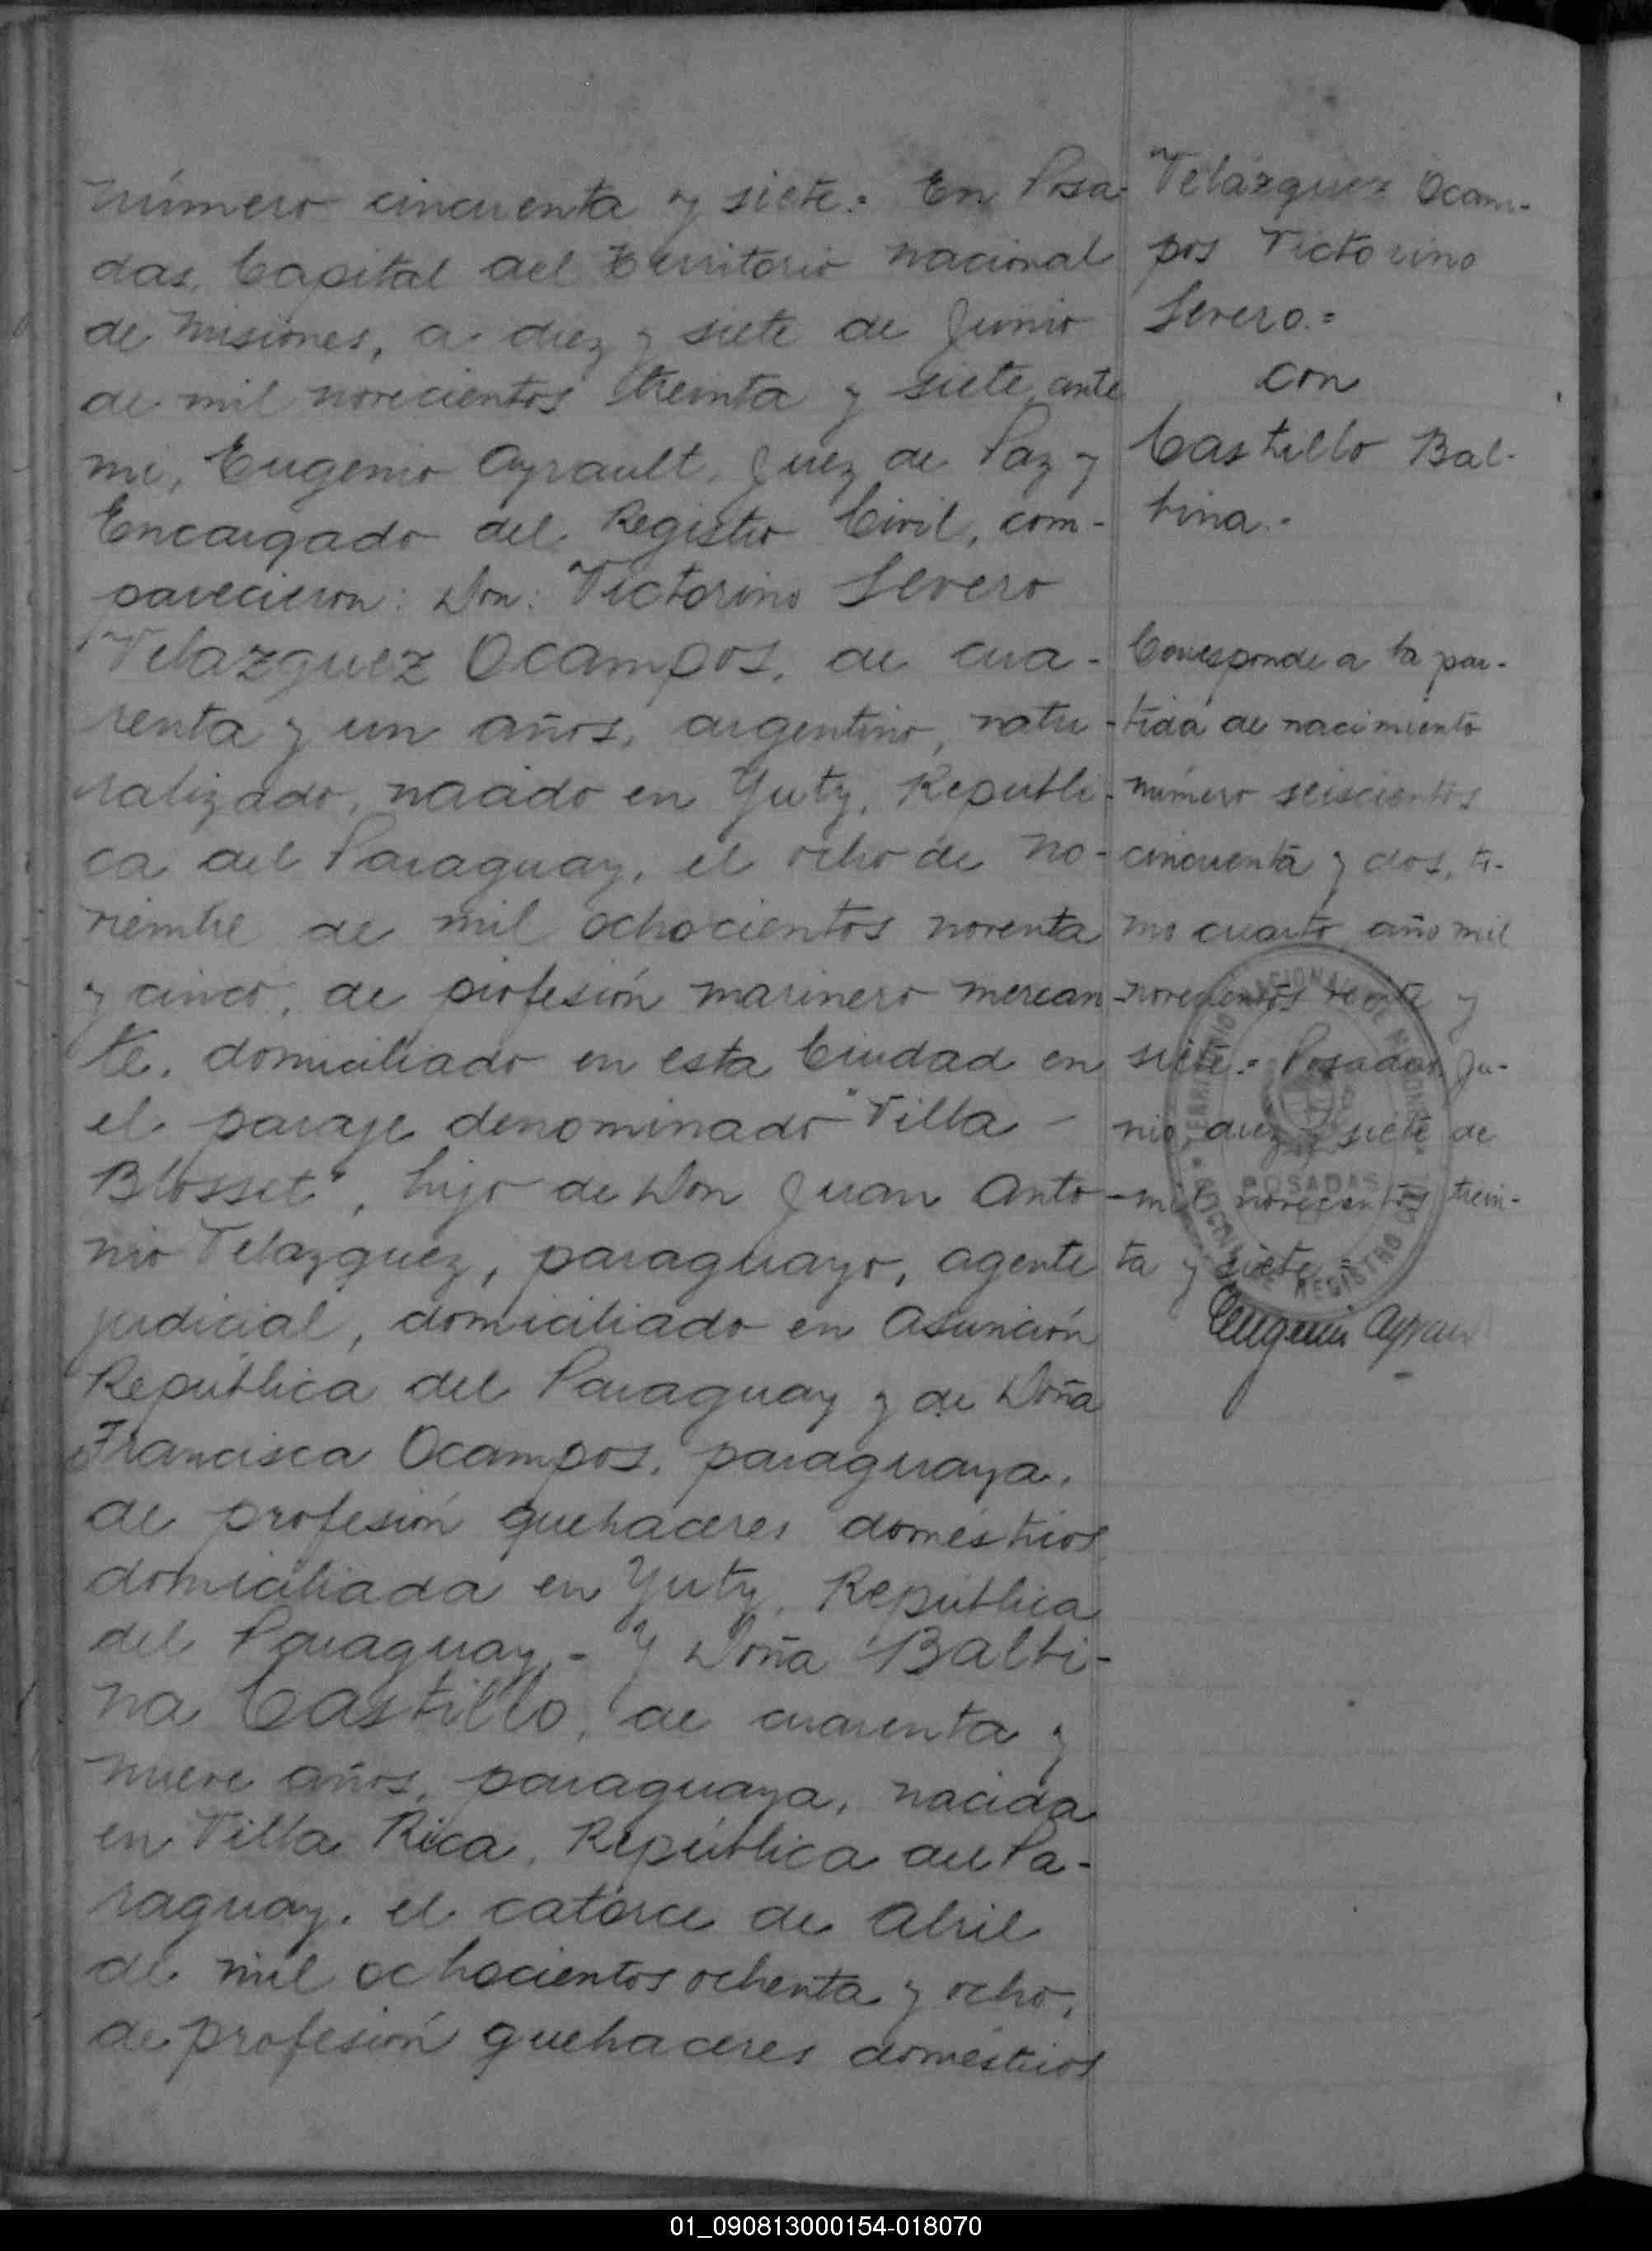 Número cincuenta y siete.= En Posa-
das, Capital del Territorio nacional
de Misiones, a diez y siete de Junio
de mil novecientos treinta y siete, ante
mi, Eugenio Ayrault, Juez de Paz y
Encargado del Registro Civil, com-
parecieron: Don: Victorino Severo
Velazquez Ocampos, de cua-
renta y un años, argentino, natu-
ralizado, nacido en Yuty, Republi-
ca del Paraguay, el ocho de No-
viembre de mil ochocientos noventa
y cinco, de profesión marinero mercan-
te, domiciliado en esta Ciudad en
el paraje denominado "Villa
Blosset", hijo de Don Juan Anto-
nio Velazquez, paraguayo, agente
judicial, domiciliado en Asunción
República del Paraguay y de Doña
Francisca Ocampos, paraguaya,
de profesión quehaceres domésticos
domiciliada en Yuty, República
del Paraguay.- Y Doña Balbi-
na Castillo, de cuarenta y
nueve años, paraguaya, nacida
en Villa Rica, República del Pa-
raguay, el catorce de Abril
de mil ochocientos ochenta y ocho,
de profesión quehaceres domésticos
Velázquez Ocam-
pos Victorino
Severo.=
con
Castillo Bal-
bina.-
Corresponde a la par-
tida de nacimiento
número seiscientos
cincuenta y dos, to-
mo cuarto, año mil
novecientos veinte y
siete.= Posadas, Ju-
nio diez y siete de
mil novecientos trein-
ta y siete.=
Eugenio Ayrault
TERRITORIO NACIONAL DE MISIONES
POSADAS
REGISTRO CIVIL
01_090813000154-018070